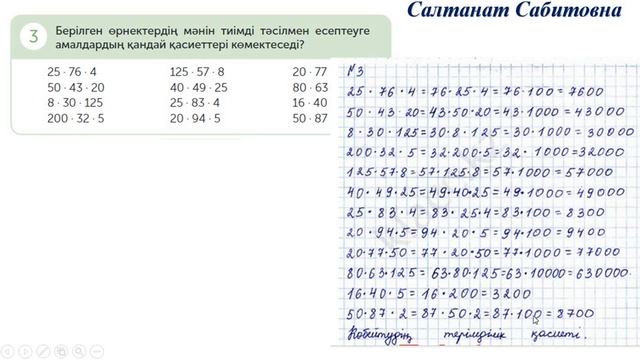 Салтанат Сабитовна
3 Берілген өрнектердің мәнін тиімді тәсілмен есептеуге
амалдардың қандай қасиеттері көмектеседі?
25 · 76 · 4 125 · 57 · 8 20 · 77
50 · 43 · 20 40 · 49 · 25 80 · 63
8 · 30 · 125 25 · 83 · 4 16 · 40
200 · 32 · 5 20 · 94 · 5 50 · 87
№3
25 · 76 · 4 = 76 · 25 · 4 = 76 · 100 = 7600
50 · 43 · 20 = 43 · 50 · 20 = 43 · 1000 = 43000
8 · 30 · 125 = 30 · 8 · 125 = 30 · 1000 = 30000
200 · 32 · 5 = 32 · 200 · 5 = 32 · 1000 = 32000
125 · 57 · 8 = 57 · 125 · 8 = 57 · 1000 = 57000
40 · 49 · 25 = 49 · 40 · 25 = 49 · 1000 = 49000
25 · 83 · 4 = 83 · 25 · 4 = 83 · 100 = 8300
20 · 94 · 5 = 94 · 20 · 5 = 94 · 100 = 9400
20 · 77 · 50 = 77 · 20 · 50 = 77 · 1000 = 77000
80 · 63 · 125 = 63 · 80 · 125 = 63 · 10000 = 630000
16 · 40 · 5 = 16 · 200 = 3200
50 · 87 · 2 = 87 · 50 · 2 = 87 · 100 = 8700
Көбейтудің терімділік қасиеті.